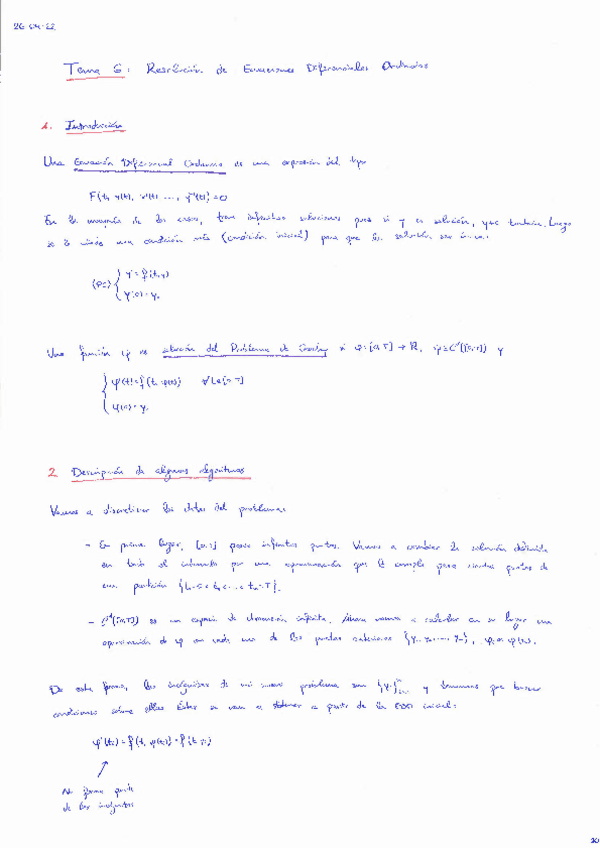 26-04-22
Tema 6: Resolución de Ecuaciones Diferenciales Ordinarias
1. Introducción
Una Ecuación Diferencial Ordinaria es una expresión del tipo
F(t, y(t), y'(t), ..., yⁿ(t)) = 0
En la mayoría de los casos, tiene infinitas soluciones pues si y es solución, y+c también. Luego
se le añade una condición más (condición inicial) para que la solución sea única:
(PC) { y' = f(t, y)
y(0) = y₀
Una función φ es solución del Problema de Cauchy si φ: [0, T] → ℝ, φ ∈ C¹([0, T]) y
{ φ'(t) = f(t, φ(t)) ∀t ∈ [0, T]
φ(0) = y₀
2. Descripción de algunos algoritmos
Vamos a discretizar los datos del problema:
- En primer lugar, [0, T] posee infinitos puntos. Vamos a cambiar la solución definida
en todo el intervalo por una aproximación que la cumpla para ciertos puntos de
una partición {t₀ = 0 < t₁ < ... < tₙ = T}.
- C¹([0, T]) es un espacio de dimensión infinita. Ahora vamos a calcular en su lugar una
aproximación de φ en cada uno de los puntos anteriores {y₀, y₁, ..., yₙ},
De esta forma, las incógnitas de mi nuevo problema son y tenemos que buscar
condiciones sobre ellas. Estas se van a obtener a partir de la EDO inicial:
φ'(tᵢ) = f(tᵢ, φ(tᵢ)) ≈ f(tᵢ, yᵢ)
No forma parte
de las incógnitas